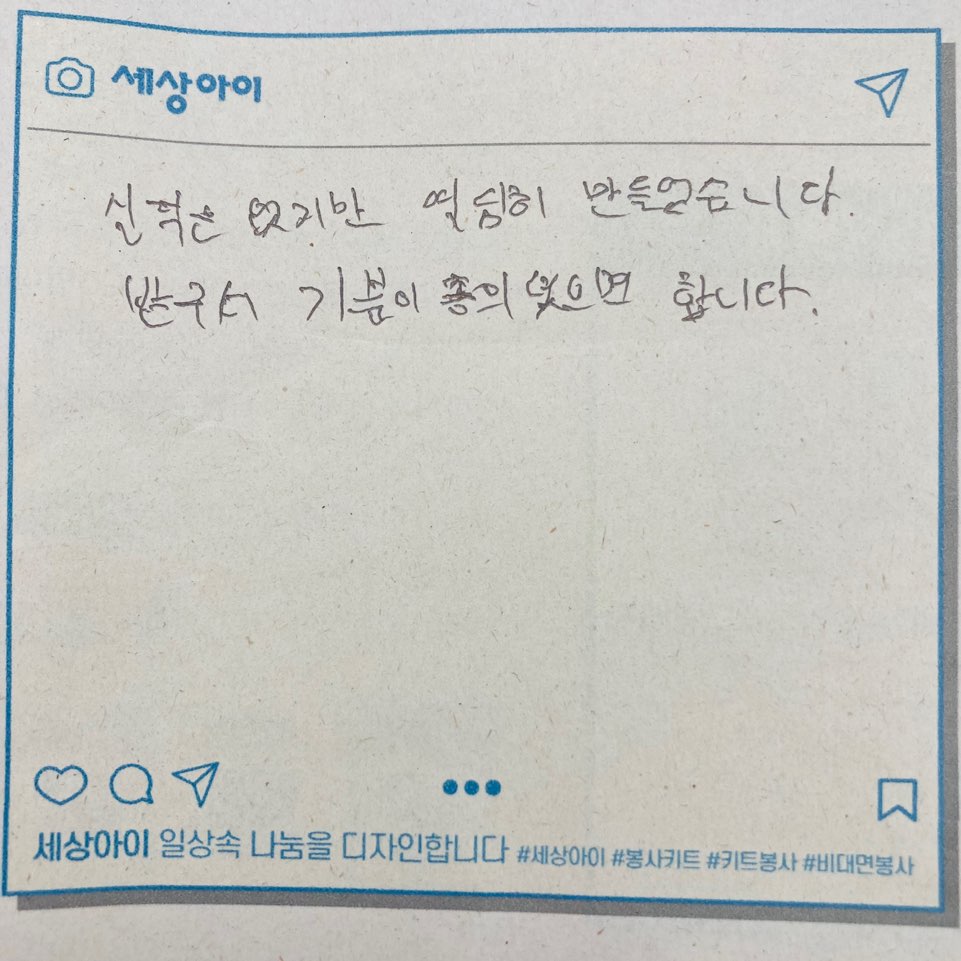 세상아이
실력은 없지만 열심히 만들었습니다.
받구서 기분이 좋의셨으면 합니다.
세상아이 일상속 나눔을 디자인합니다 #세상아이 #봉사키트 #키트봉사 #비대면봉사